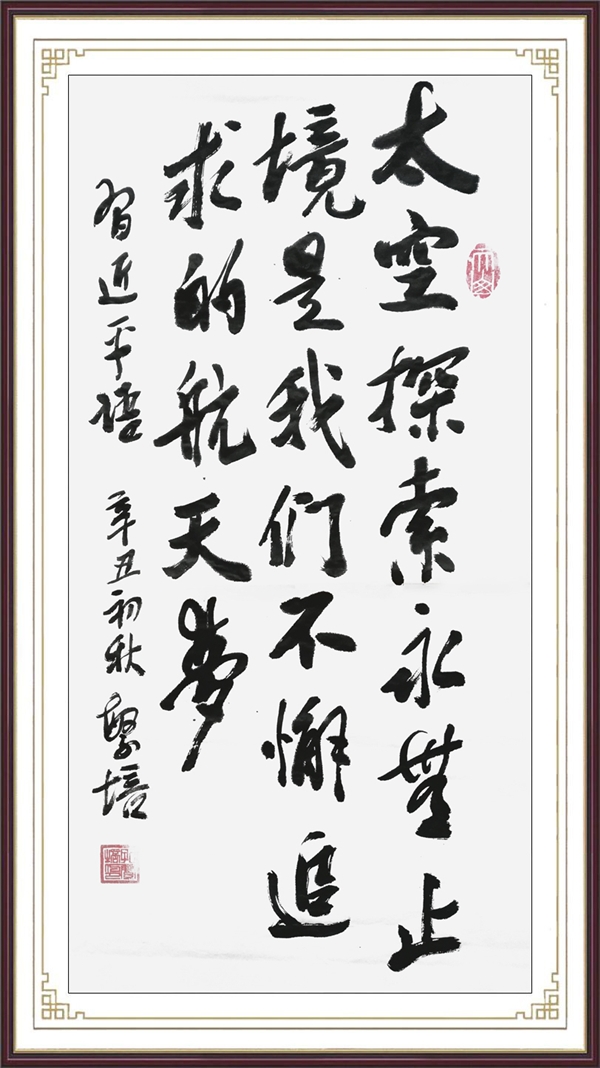 太空探索永無止
境是我们不懈追
求的航天夢
習近平語 辛丑初秋 繄培